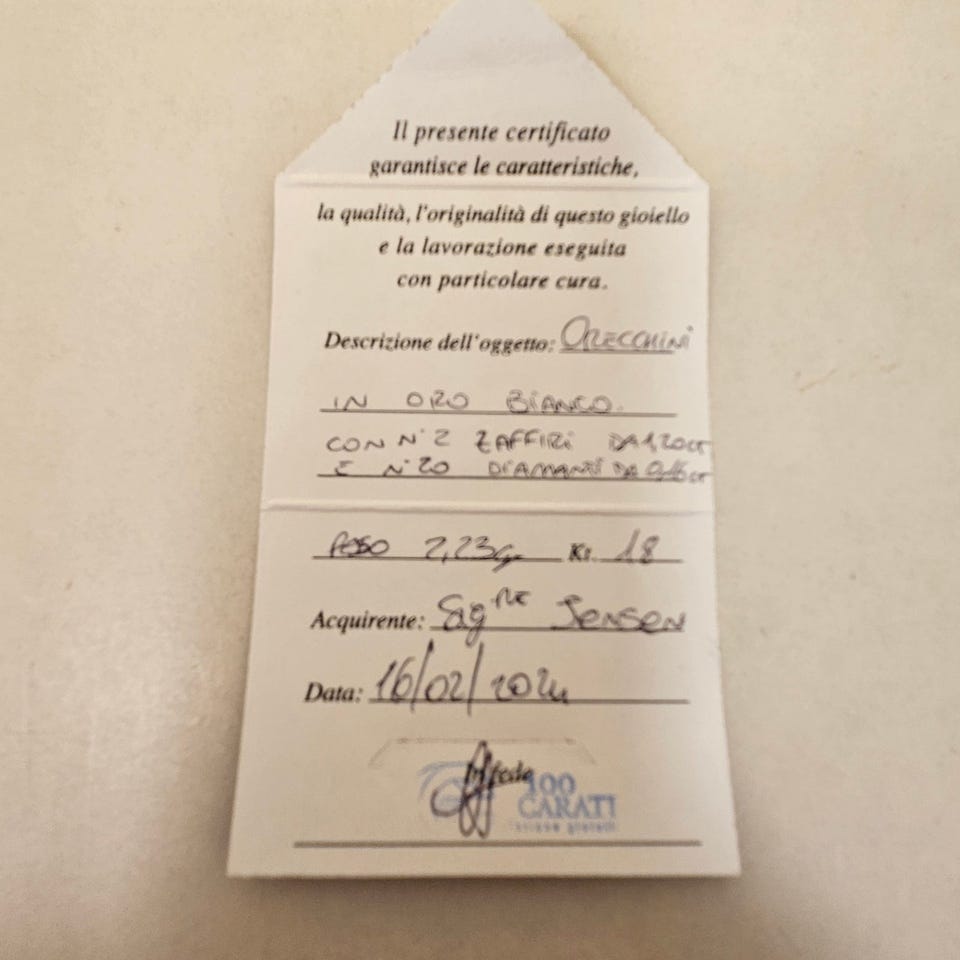 Il presente certificato
garantisce le caratteristiche,
la qualità, l'originalità di questo gioiello
e la lavorazione eseguita
con particolare cura.
Descrizione dell'oggetto: ORECCHINI
IN ORO BIANCO.
CON N° 2 ZAFFIRI DA 1,20 CT
E N° 20 DIAMANTI DA 0,16 CT
PESO 2,23 Gr Kt. 18
Acquirente: Sig.re JENSEN
Data: 16/02/2024
In fede
100
CARATI
gioielli